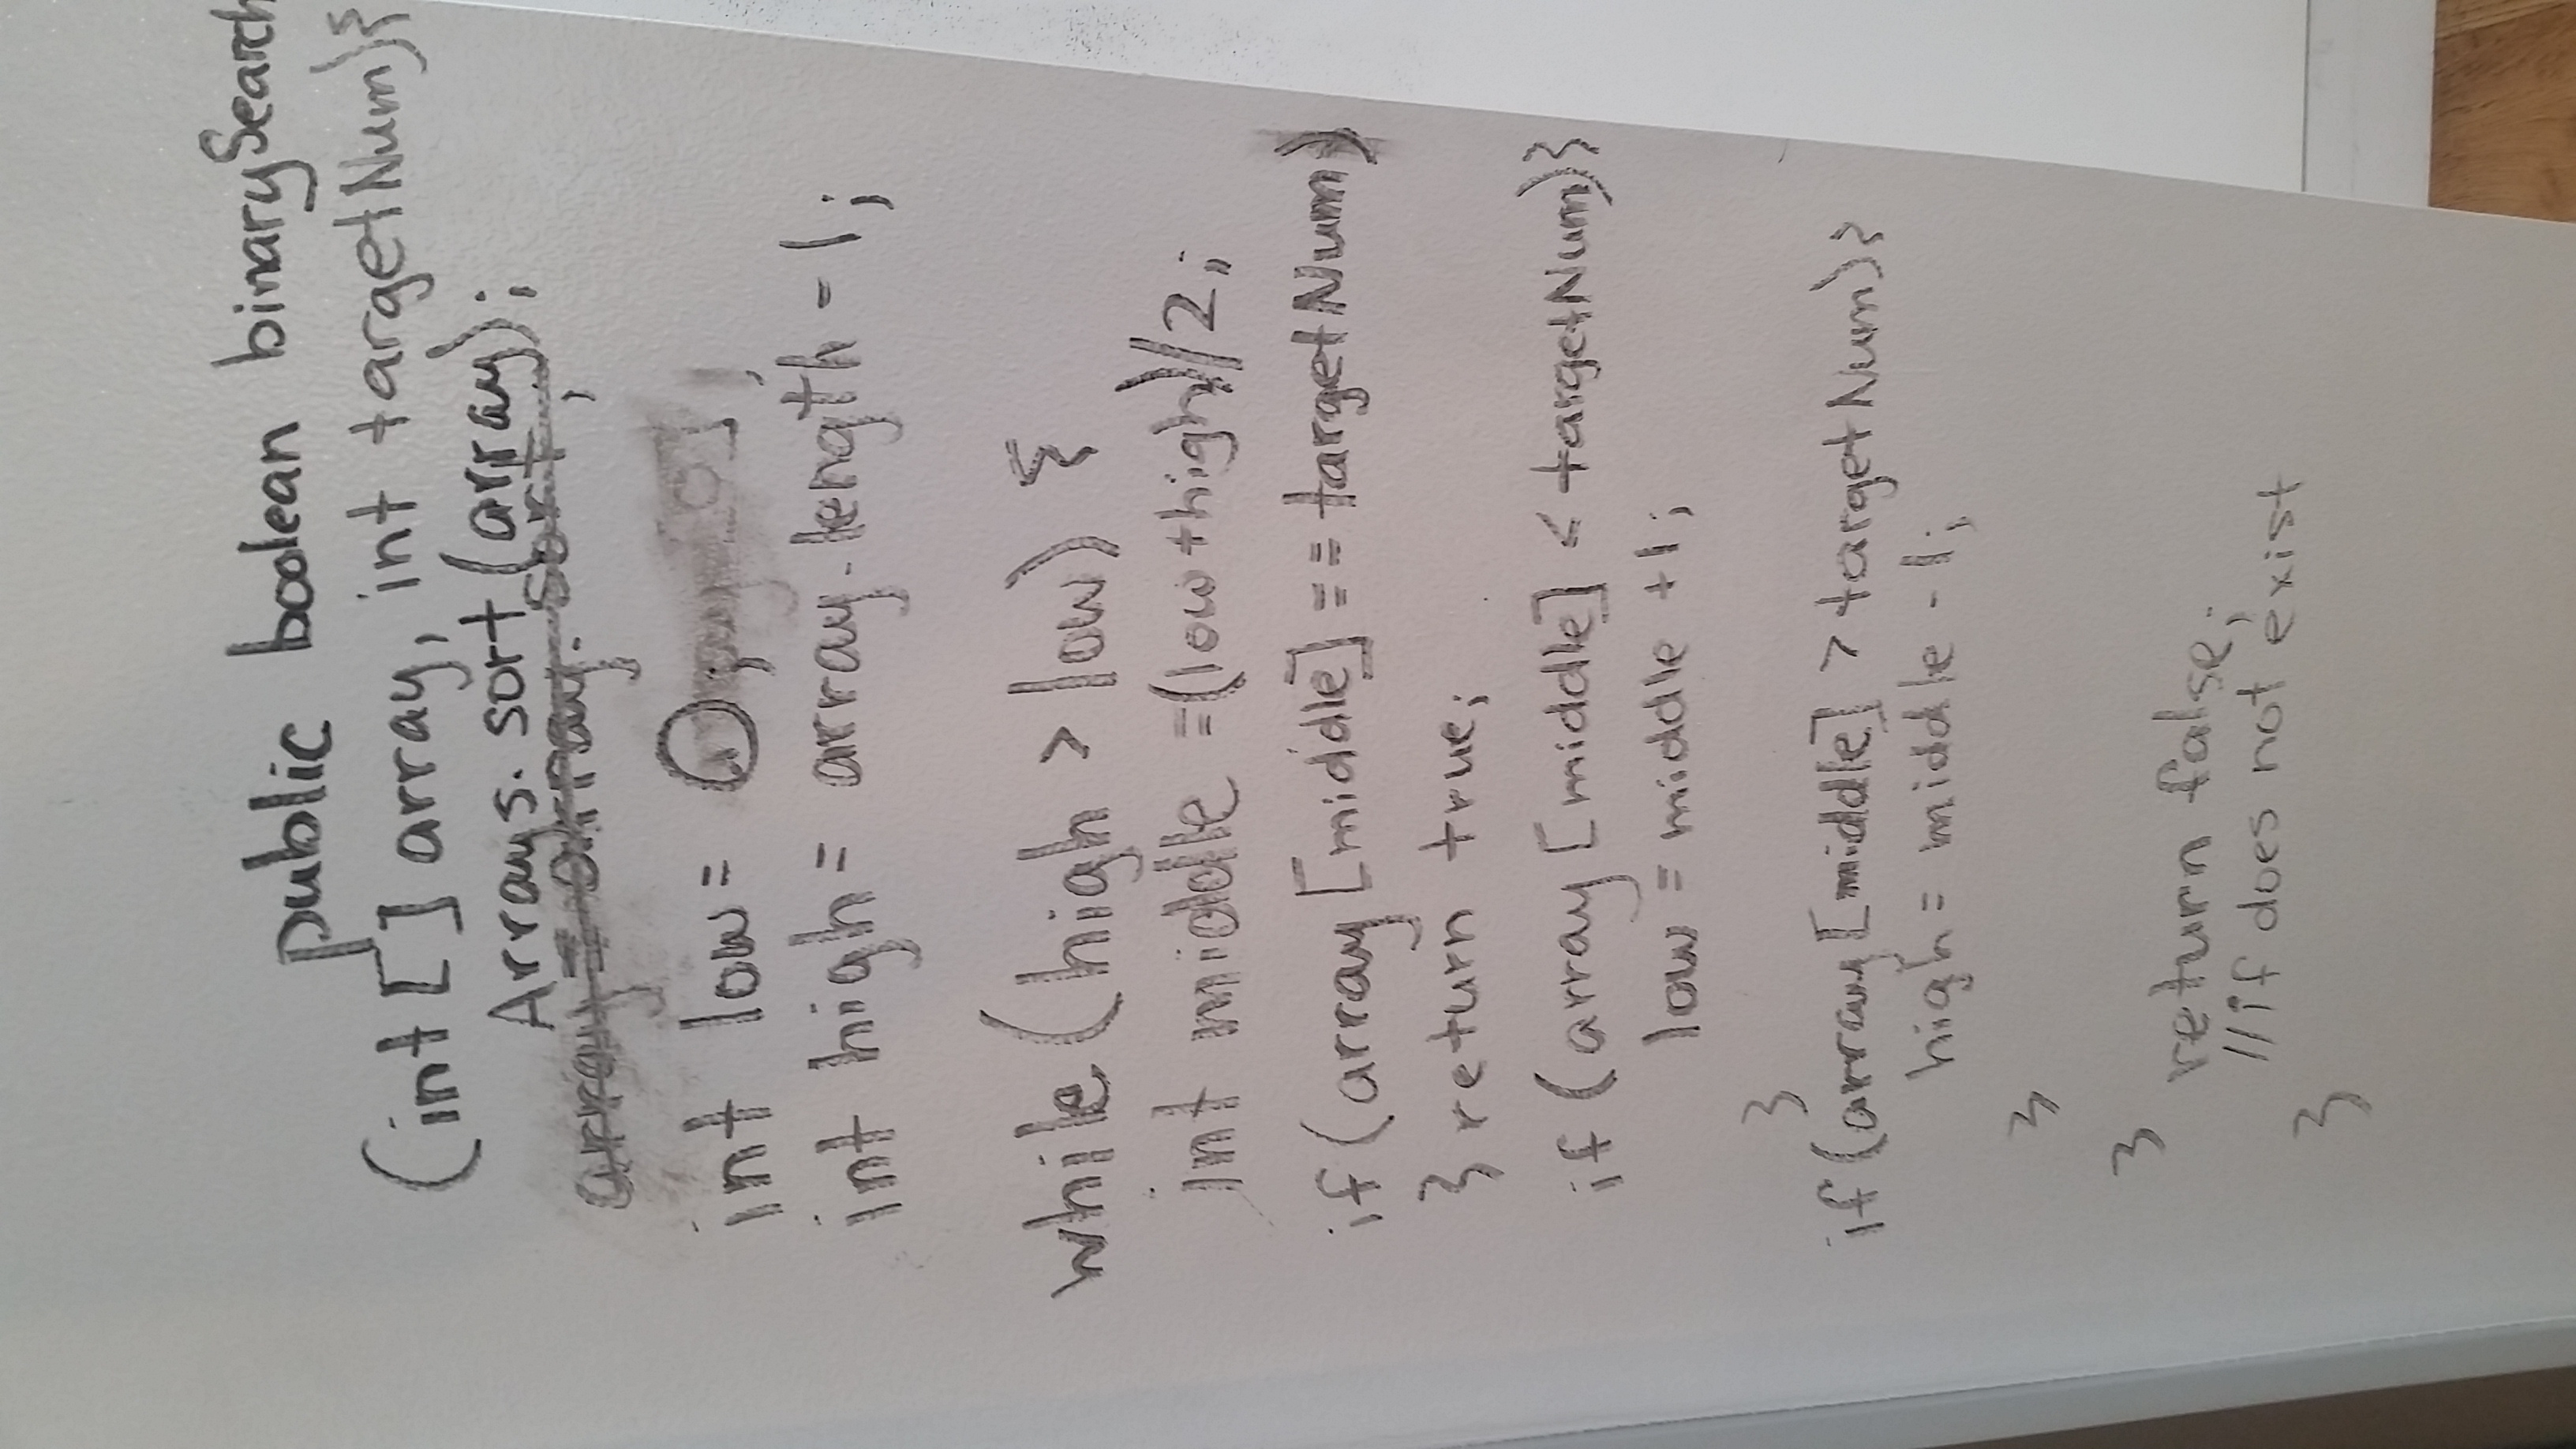 public boolean binarySearch
(int[] array, int targetNum){
Arrays.sort(array);
array = array.sort;
int low = 0;
int high = array.length - 1;
while(high > low) {
int middle =(low+high)/2;
if(array[middle] == targetNum)
} return true;
if (array[middle] < targetNum)}
low = middle +1;
}
if(array[middle] > targetNum)}
high = middle - 1;
}
}
return false;
//if does not exist
}